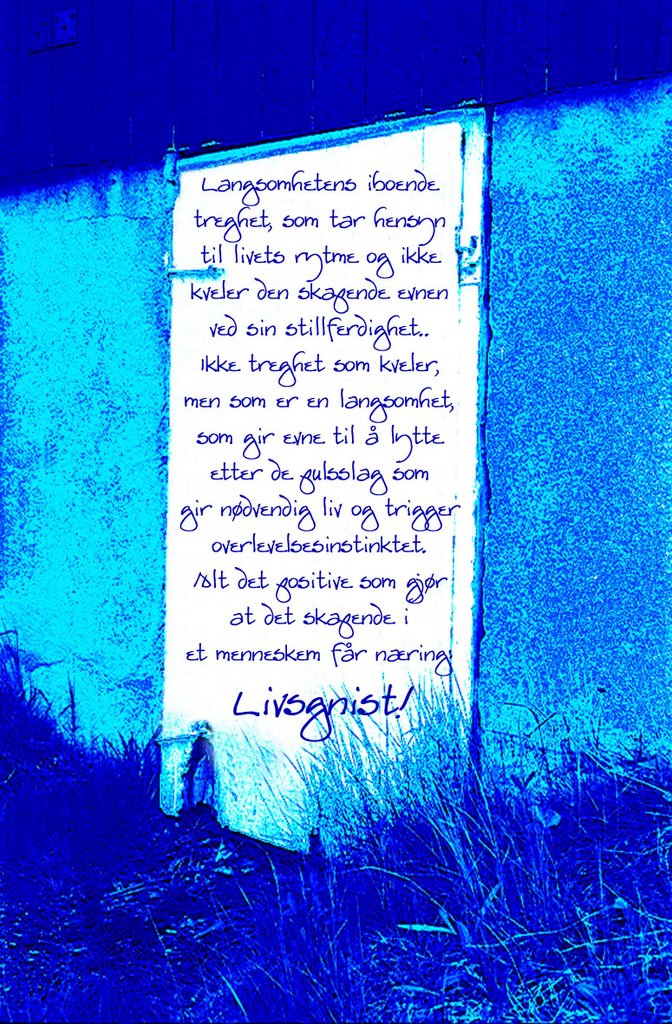 Langsomhetens iboende
treghet, som tar hensyn
til livets rytme og ikke
kveler den skapende evnen
ved sin stillferdighet..
Ikke treghet som kveler,
men som er en langsomhet,
som gir evne til å lytte
etter de pulsslag som
gir nødvendig liv og trigger
overlevelsesinstinktet.
Alt det positive som gjør
at det skapende i
et menneskem får næring:
Livsgnist!